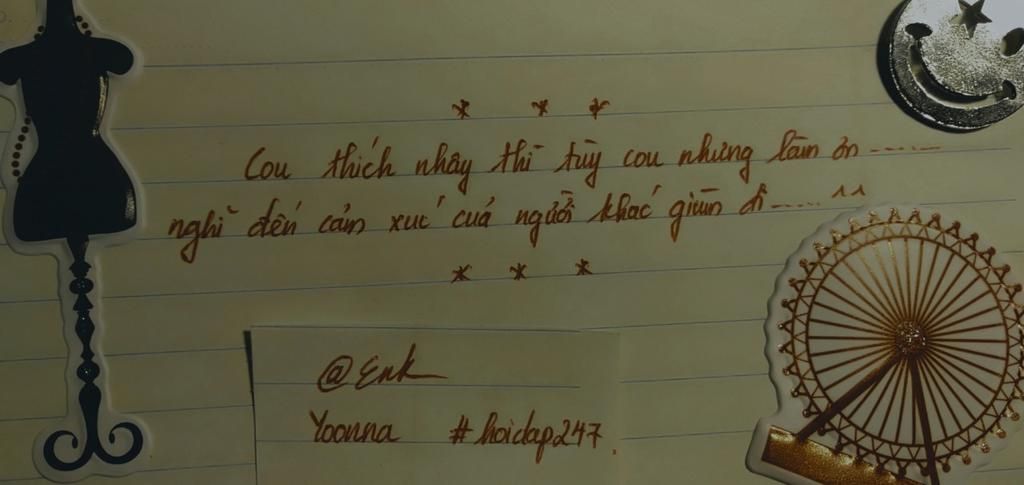 * * *
Cou thích nhây thì tùy cou nhưng làm ơn ........
nghĩ đến cảm xúc của người khác giùm đi ...... ^^
* * *
@Enk
Yoonna #hoidap247.